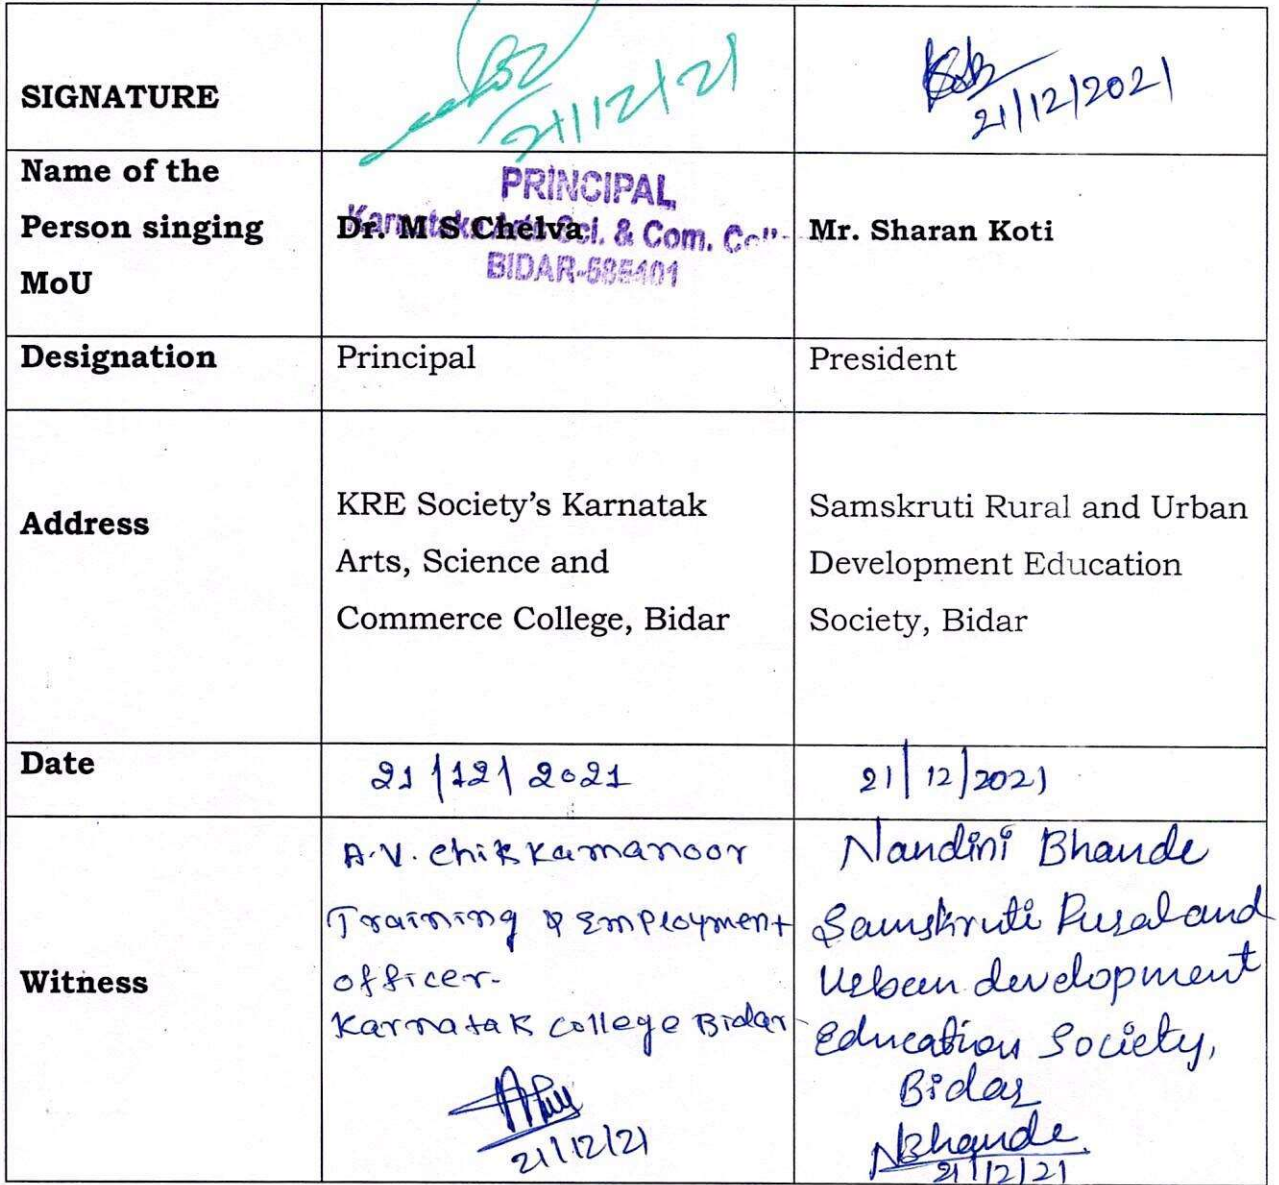 SIGNATURE
21/12/21
21/12/2021
Name of the
Person singing
MoU
PRINCIPAL
Dr. M S Chelva
Sci. & Com.
BIDAR-585401
Mr. Sharan Koti
Designation
Principal
President
Address
KRE Society's Karnatak
Arts, Science and
Commerce College, Bidar
Samskruti Rural and Urban
Development Education
Society, Bidar
Date
21/12/2021
21/12/2021
Witness
A.V. Chikkamanoor
Training & Employment
officer.
Karnatak college Bidar
21/12/21
Nandini Bhande
Samskruti Rural and
Urban development
Education Society,
Bidar
NBhande
21/12/21